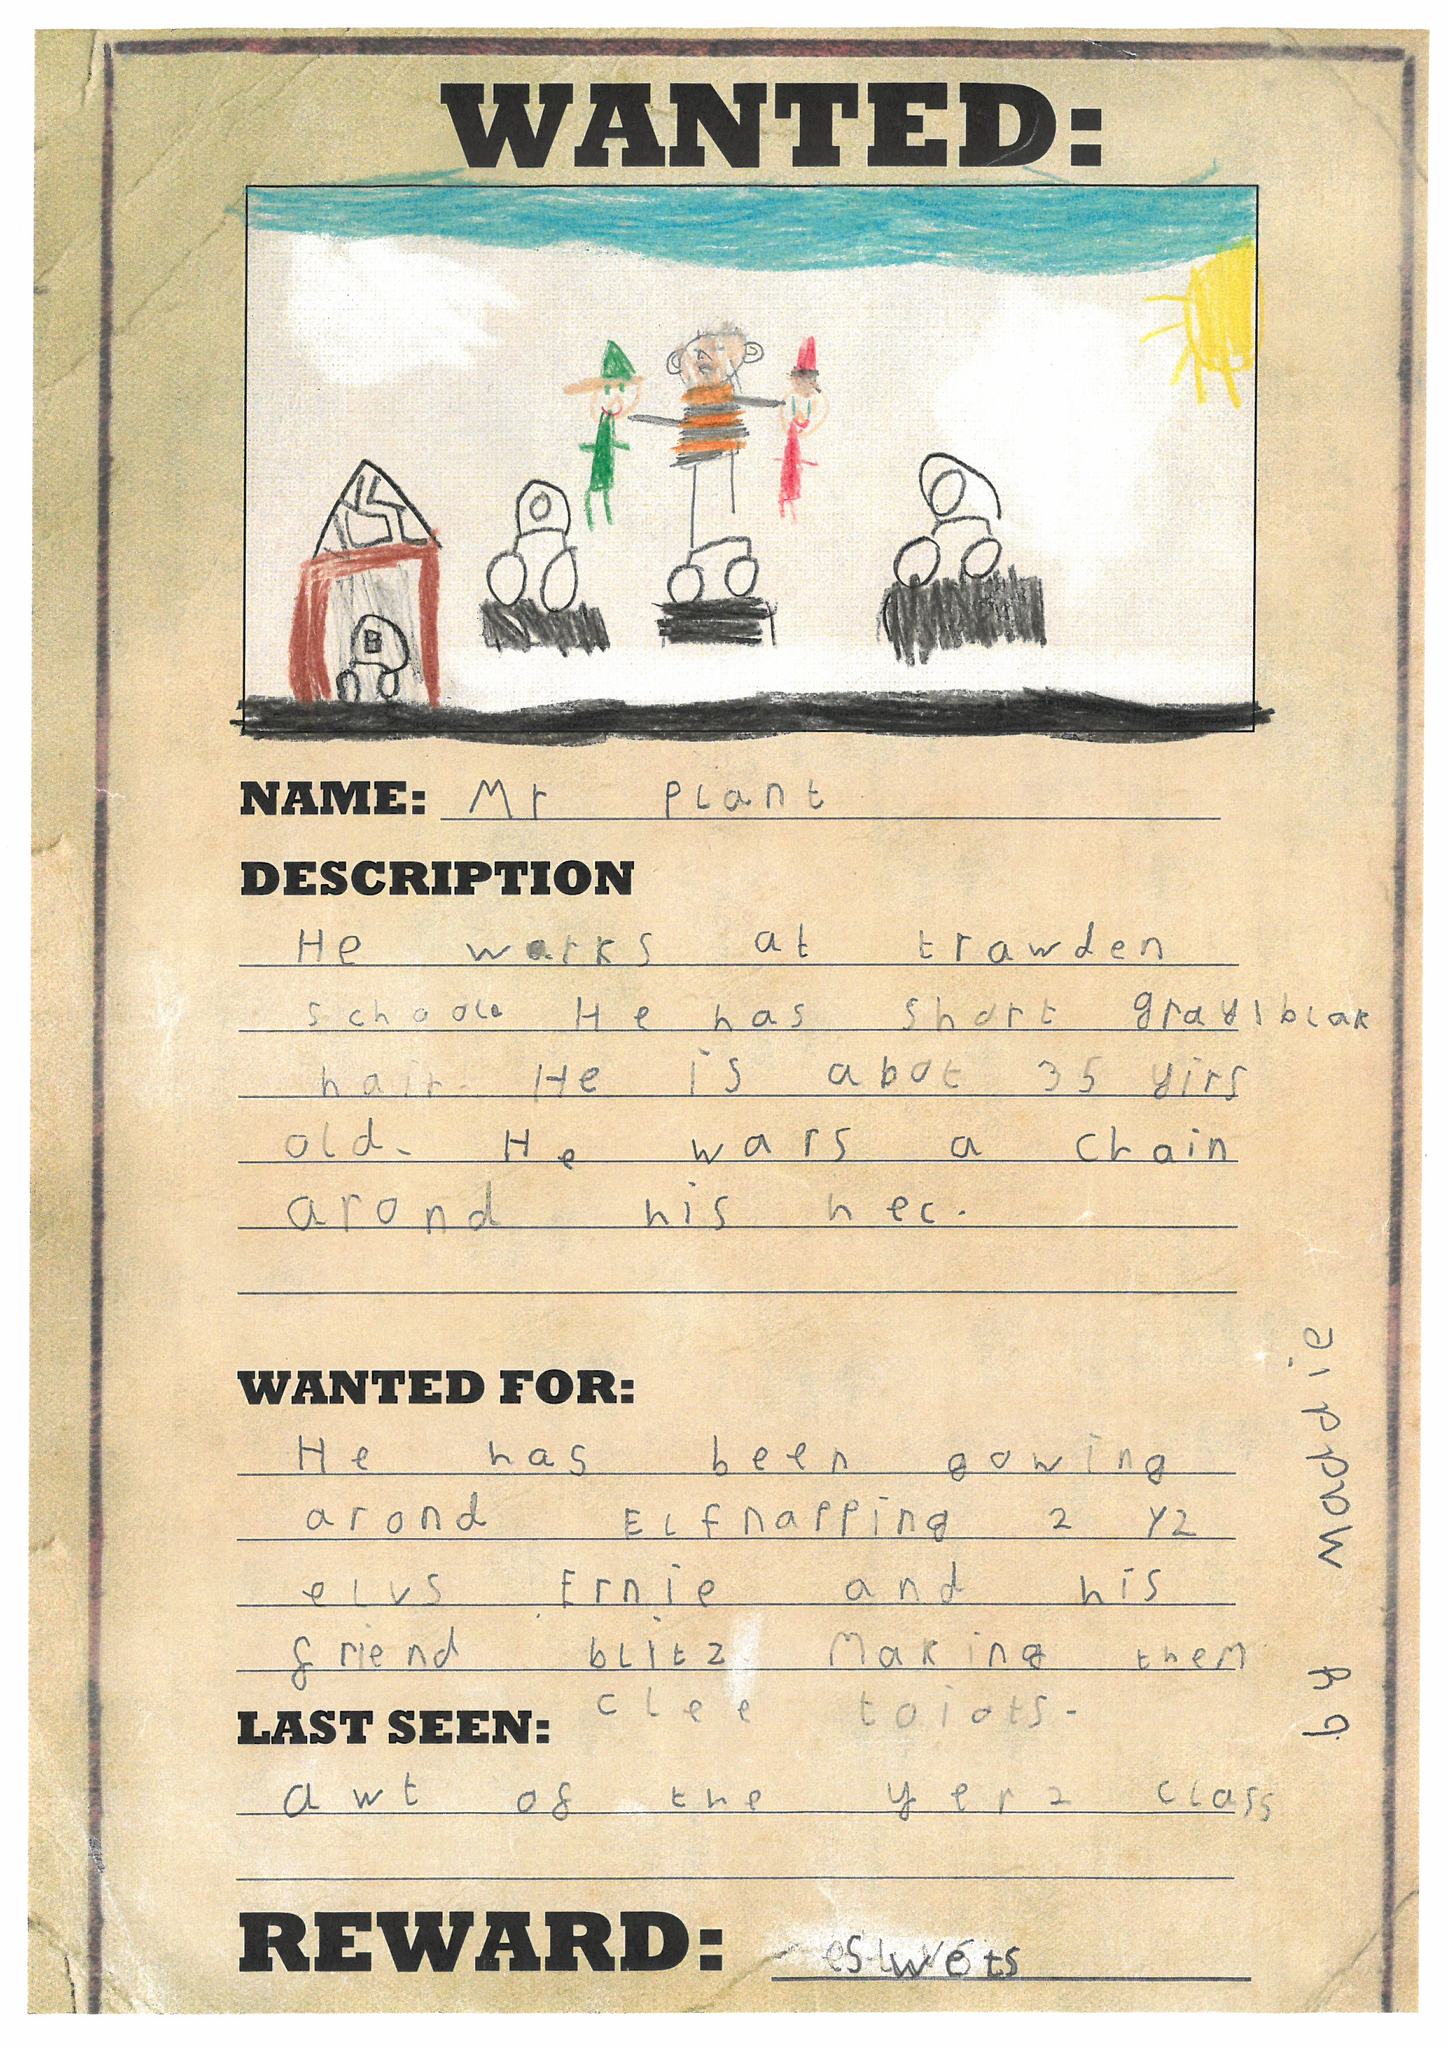 WANTED:
NAME: Mr plant
DESCRIPTION
He works at trawden
school He has short gray/blak
hair. He is abot 35 yirs
old. He wars a chain
arond his nec.
WANTED FOR:
He has been gowing
arond Elfnapping 2 Y2
elvs Ernie and his
friend blitz Making them
clee toiots.
LAST SEEN:
awt of the yer 2 class
REWARD:
by maddie